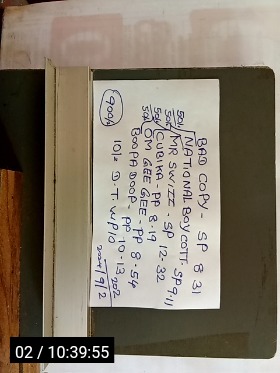 BAD COPY - SP 8.31
50/1 NATIONAL BOYCOTT SP 9.11
50/- MR SWIZZ - SP 12-32
50/- CUBIKA - PP 8-19
50/- OM GEE GEE - PP 8-54
BOOPADOOP - PP 10-13
10/2 D.T. W/P/10
900/-
02 / 10:39:55